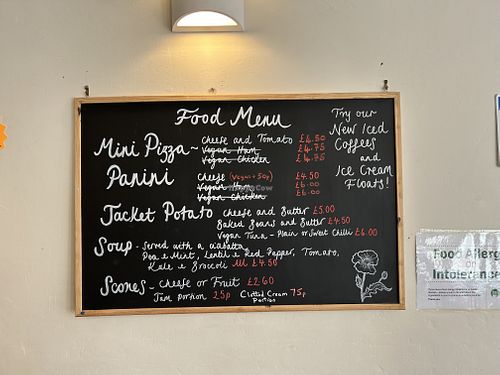 Food Menu
Mini Pizza ~ Cheese and Tomato £4.50
Vegan Ham £4.75
Vegan Chicken £4.75
Panini Cheese (Vegan + 50p) £4.50
Vegan Ham £6.00
Vegan Chicken £6.00
Jacket Potato Cheese and Butter £5.00
Baked Beans and Butter £4.50
Vegan Tuna - Plain or Sweet Chilli £6.00
Soup - Served with a ciabatta
Pea & Mint, Lentil & Red Pepper, Tomato,
Kale & Broccoli All £4.50
Scones - Cheese or Fruit £2.60
Jam Portion 25p Clotted Cream Portion 75p
Try our
New Iced
Coffees
and
Ice Cream
Floats!
Food Allerg
or
Intolerance